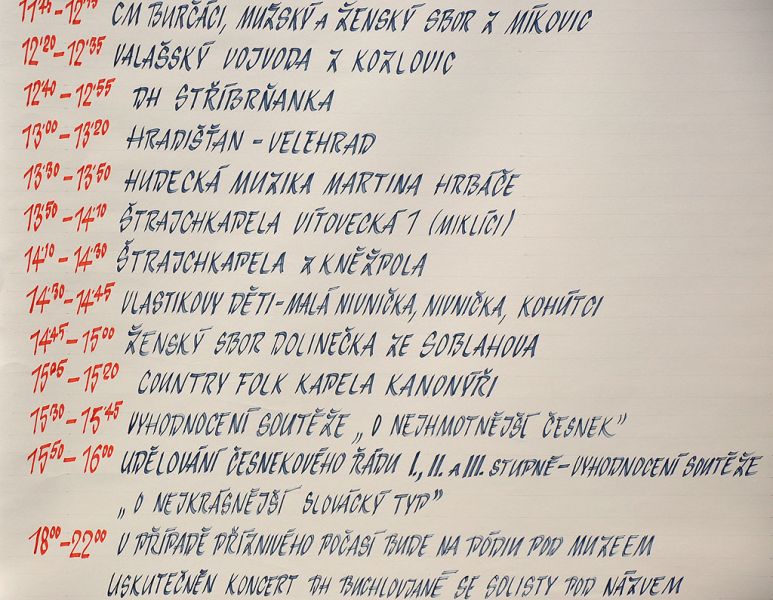 11⁴⁵-12¹⁵ CM BURČÁCI, MUŽSKÝ A ŽENSKÝ SBOR Z MÍKOVIC
12'²⁰-12'³⁵ VALAŠSKÝ VOJVODA Z KOZLOVIC
12'⁴⁰-12'⁵⁵ DH STŘÍBRŇANKA
13'⁰⁰-13'²⁰ HRADIŠŤAN - VELEHRAD
13'³⁰-13'⁵⁰ HUDECKÁ MUZIKA MARTINA HRBÁČE
13'⁵⁰-14'¹⁰ ŠTRAJCHKAPELA VÍTOVECKÁ 1 (MIKLÍCI)
14'¹⁰-14'³⁰ ŠTRAJCHKAPELA Z KNĚŽPOLA
14'³⁰-14'⁴⁵ VLASTIKOVY DĚTI - MALÁ NIVNIČKA, NIVNIČKA, KOHÚTCI
14⁴⁵-15⁰⁰ ŽENSKÝ SBOR DOLINEČKA ZE SOBLAHOVA
15⁰⁵-15²⁰ COUNTRY FOLK KAPELA KANONÝŘI
15³⁰-15'⁴⁵ VYHODNOCENÍ SOUTĚŽE „O NEJHMOTNĚJŠÍ ČESNEK"
15⁵⁰-16⁰⁰ UDĚLOVÁNÍ ČESNEKOVÉHO ŘÁDU I., II. A III. STUPNĚ - VYHODNOCENÍ SOUTĚŽE
„O NEJKRÁSNĚJŠÍ SLOVÁCKÝ TYP"
18⁰⁰-22⁰⁰ V PŘÍPADĚ PŘÍZNIVÉHO POČASÍ BUDE NA PÓDIU POD MUZEEM
USKUTEČNĚN KONCERT DH BUCHLOVJANÉ SE SOLISTY POD NÁZVEM